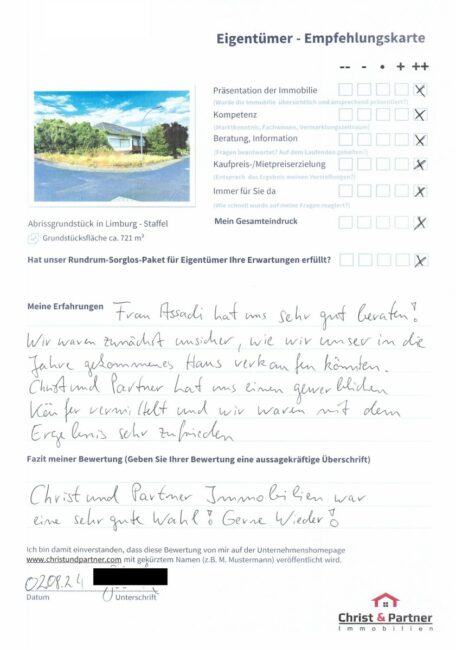 Eigentümer - Empfehlungskarte
-- - • + ++
Präsentation der Immobilie
(Wurde die Immobilie übersichtlich und ansprechend präsentiert?)
Kompetenz
(Marktkenntnis, Fachwissen, Vermarktungszeitraum)
Beratung, Information
(Fragen beantwortet? Auf dem Laufenden gehalten?)
Kaufpreis-/Mietpreiserzielung
(Entsprach das Ergebnis meinen Vorstellungen?)
Immer für Sie da
(Wie schnell wurde auf meine Fragen reagiert?)
Mein Gesamteindruck
Abrissgrundstück in Limburg - Staffel
Grundstücksfläche ca. 721 m²
Hat unser Rundrum-Sorglos-Paket für Eigentümer Ihre Erwartungen erfüllt?
Meine Erfahrungen Frau Assadi hat uns sehr gut beraten!
Wir waren zunächst unsicher, wie wir unser in die
Jahre gekommenes Haus verkaufen könnten.
Christ und Partner hat uns einen gewerblichen
Käufer vermittelt und wir waren mit dem
Ergebnis sehr zufrieden
Fazit meiner Bewertung (Geben Sie Ihrer Bewertung eine aussagekräftige Überschrift)
Christ und Partner Immobilien war
eine sehr gute Wahl! Gerne Wieder!
Ich bin damit einverstanden, dass diese Bewertung von mir auf der Unternehmenshomepage
www.christundpartner.com mit gekürztem Namen (z.B. M. Mustermann) veröffentlicht wird.
02.08.24
Datum Unterschrift
Christ & Partner
Immobilien